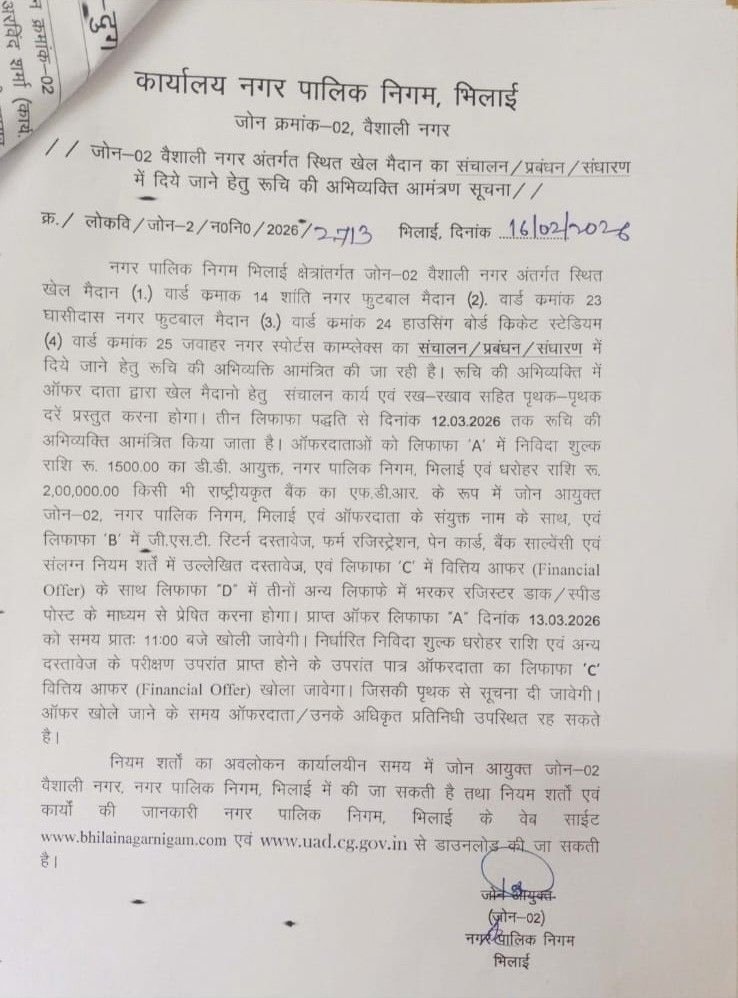 -दुर्ग
न क्रमांक-02
अरविंद शर्मा (कार्य.
कार्यालय नगर पालिक निगम, भिलाई
जोन क्रमांक-02, वैशाली नगर
// जोन-02 वैशाली नगर अंतर्गत स्थित खेल मैदान का संचालन/प्रबंधन/संधारण
में दिये जाने हेतु रूचि की अभिव्यक्ति आमंत्रण सूचना//
क्र./ लोकवि/जोन-2/न0नि0/2026/2713 भिलाई, दिनांक 16/02/2026
नगर पालिक निगम भिलाई क्षेत्रांतर्गत जोन-02 वैशाली नगर अंतर्गत स्थित
खेल मैदान (1.) वार्ड कमाक 14 शांति नगर फुटबाल मैदान (2). वार्ड कमांक 23
घासीदास नगर फुटबाल मैदान (3.) वार्ड कमांक 24 हाउसिंग बोर्ड किकेट स्टेडियम
(4) वार्ड कमांक 25 जवाहर नगर स्पोर्टस काम्प्लेक्स का संचालन/प्रबंधन/संधारण में
दिये जाने हेतु रूचि की अभिव्यक्ति आमंत्रित की जा रही है। रूचि की अभिव्यक्ति में
ऑफर दाता द्वारा खेल मैदानो हेतु संचालन कार्य एवं रख-रखाव सहित पृथक-पृथक
दरें प्रस्तुत करना होगा। तीन लिफाफा पद्धति से दिनांक 12.03.2026 तक रूचि की
अभिव्यक्ति आमंत्रित किया जाता है। ऑफरदाताओं को लिफाफा 'A' में निविदा शुल्क
राशि रू. 1500.00 का डी.डी. आयुक्त, नगर पालिक निगम, भिलाई एवं धरोहर राशि रू.
2,00,000.00 किसी भी राष्ट्रीयकृत बैंक का एफ.डी.आर. के रूप में जोन आयुक्त
जोन-02, नगर पालिक निगम, भिलाई एवं ऑफरदाता के संयुक्त नाम के साथ, एवं
लिफाफा 'B' में जी.एस.टी. रिटर्न दस्तावेज, फर्म रजिस्ट्रेशन, पेन कार्ड, बैंक साल्वेंसी एवं
संलग्न नियम शर्ते में उल्लेखित दस्तावेज, एवं लिफाफा 'C' में वित्तिय आफर (Financial
Offer) के साथ लिफाफा "D" में तीनों अन्य लिफाफे में भरकर रजिस्टर डाक/स्पीड
पोस्ट के माध्यम से प्रेषित करना होगा। प्राप्त ऑफर लिफाफा "A" दिनांक 13.03.2026
को समय प्रातः 11:00 बजे खोली जावेगी। निर्धारित निविदा शुल्क धरोहर राशि एवं अन्य
दस्तावेज के परीक्षण उपरांत प्राप्त होने के उपरांत पात्र ऑफरदाता का लिफाफा 'C'
वित्तिय आफर (Financial Offer) खोला जावेगा। जिसकी पृथक से सूचना दी जावेगी।
ऑफर खोले जाने के समय ऑफरदाता/उनके अधिकृत प्रतिनिधी उपस्थित रह सकते
है।
नियम शर्तो का अवलोकन कार्यालयीन समय में जोन आयुक्त जोन-02
वैशाली नगर, नगर पालिक निगम, भिलाई में की जा सकती है तथा नियम शर्तो एवं
कार्यो की जानकारी नगर पालिक निगम, भिलाई के वेब साईट
www.bhilainagarnigam.com एवं www.uad.cg.gov.in से डाउनलोड की जा सकती
है।
जोन आयुक्त
(जोन-02)
नगर पालिक निगम
भिलाई